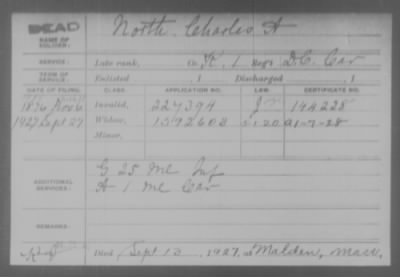 DEAD
NAME OF SOLDIER: North, Charles A
SERVICE: Late rank, Co. K, 1 Reg't D.C. Cav
TERM OF SERVICE: Enlisted , 1 Discharged , 1
DATE OF FILING. CLASS. APPLICATION NO. LAW. CERTIFICATE NO.
1876 Nov 6 Invalid, 227394 144228
1927 Sept 27 Widow, 1592603 5-1-20 a1-7-28
Minor,
ADDITIONAL SERVICES: G 25 Me Inf
A 1 Me Cav
REMARKS:
Died Sept 13, 1927, at Malden, Mass,